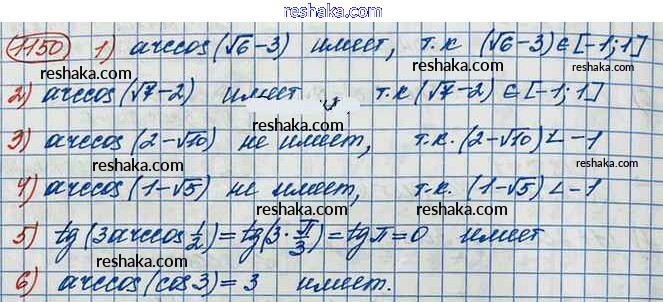 www.reshaka.com
1150 1) arccos(√6-3) имеет, т.к (√6-3)∈[-1;1]
reshaka.com reshaka.com reshaka.com
2) arccos(√7-2) имеет т.к (√7-2)∈[-1;1]
reshaka.com
3) arccos(2-√10) не имеет, т.к. (2-√10)<-1
reshaka.com reshaka.com
4) arccos(1-√5) не имеет, т.к. (1-√5)<-1
reshaka.com reshaka.com
5) tg(3arccos 1/2)=tg(3·π/3)=tgπ=0 имеет
reshaka.com reshaka.com
6) arccos(cos3)=3 имеет.
reshaka.com reshaka.com